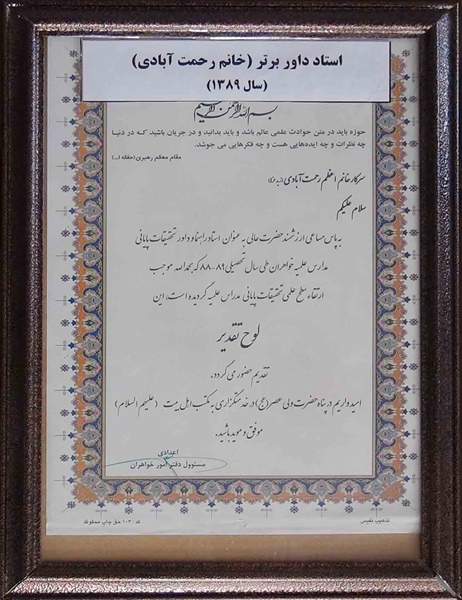 استاد داور برتر (خانم رحمت آبادی)
(سال ۱۳۸۹)
بسم الله الرحمن الرحیم
حوزه باید در متن حوادث علمی عالم باشد و باید بدانید و در جریان باشید که در دنیا
چه نظرات و چه ایده‌هایی هست و چه فکرهایی می جوشد.
مقام معظم رهبری (حفظه ا...)
سرکار خانم اعظم رحمت آبادی
سلام علیکم
به پاس مساعی ارزشمند حضرت عالی به عنوان استاد راهنما و داور تحقیقات پایانی
مدارس علمیه خواهران طی سال تحصیلی ۸۹-۸۸ که بحمدالله موجب
ارتقاء سطح علمی تحقیقات پایانی مدارس علمیه گردیده است، این
لوح تقدیر
تقدیم حضورتان می گردد.
امیدواریم در پناه حضرت ولی عصر (عج) در خدمتگزاری به مکتب اهل بیت (علیهم السلام)
موفق و موید باشید.
اعدادی
مسئوول دفتر امور خواهران
تذهیب نفیس
کد: ۱۰۳ حق چاپ محفوظ